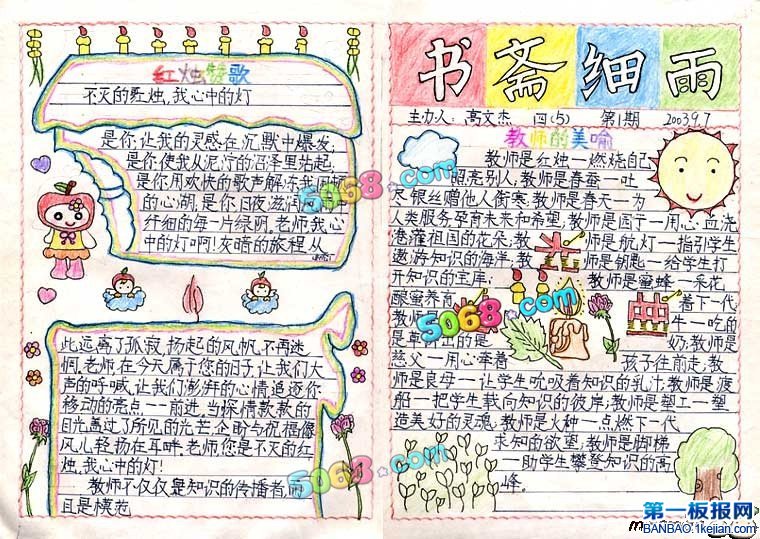 红烛颂歌
不灭的红烛,我心中的灯
是你,让我的灵感,在沉默中爆发;
是你,使我从泥泞的沼泽里站起;
是你,用欢快的歌声解冻我
的心潮,是你,日夜滋润
纤细的每一片绿阴,老师,我心
中的灯啊!灰暗的旅程,从
此远离了孤寂,扬起的风帆,不再迷
惘,老师,在今天属于您的日子,让我们大
声的呼喊,让我们澎湃的心情追逐你
移动的亮点——前进,当深情款款的
目光,蓋过了所见的光芒,企盼与祝福像
风儿,轻扬在耳畔,老师,您是不灭的红
烛,我心中的灯!
教师不仅仅是知识的传播者,而
且是模范
书斋细雨
主办人:高文杰 四(5) 第1期 2003.9.7
教师的美喻
教师是红烛—燃烧自己
照亮别人;教师是春蚕—吐
尽银丝赠他人御寒;教师是春天—为
人类服务,孕育未来和希望;教师是园丁—用心血浇
灌祖国的花朵;教师是航灯—指引学生
遨游知识的海洋;教师是钥匙—给学生打
开知识的宝库; 教师是蜜蜂—采花
酿蜜养育 着下一代
教师 牛—吃的
是草 出的是 奶;教师是
慈父—用心牵着 孩子往前走;教
师是良母—让学生吮吸着知识的乳汁;教师是渡
船—把学生载向知识的彼岸;教师是塑工—塑
造美好的灵魂;教师是火种—点燃下一代
求知的欲望;教师是脚梯
—助学生攀登知识的高
峰。
5068.com
5068.com
5068.com
第一板报网
BANBAO.1kejian.com